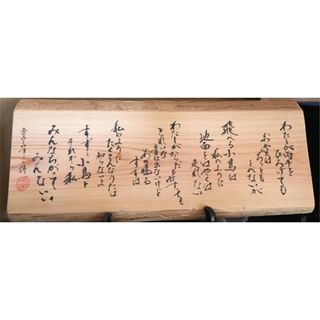 わたしが両手を
ひろげても
お空はちっとも
とべないが
飛べる小鳥は
私のように
地面をはやくは
走れない
わたしがからだをゆすっても
きれいな
音は出ないけど
あの鳴る
すずは
私のように
たくさんなうたは
知らないよ
すずと小鳥と
それから私
みんなちがって
みんないい